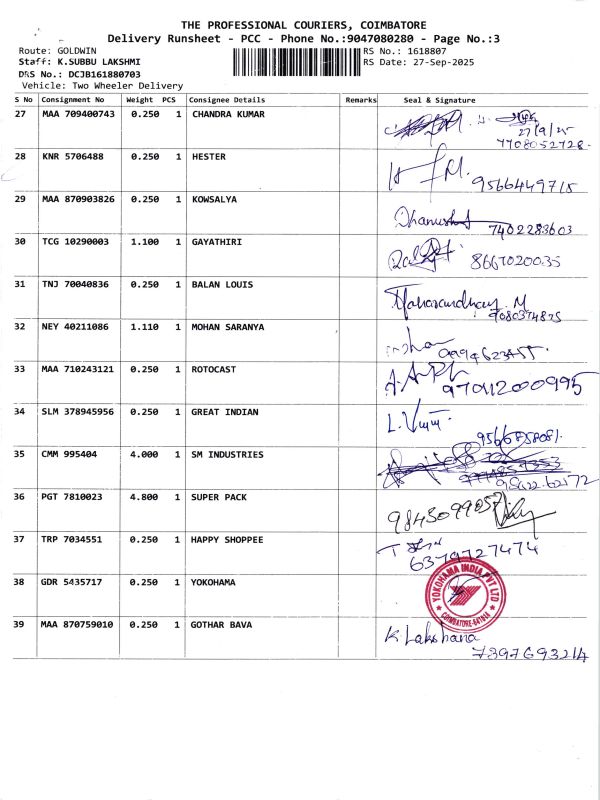 THE PROFESSIONAL COURIERS, COIMBATORE
Delivery Runsheet - PCC - Phone No.:9047080280 - Page No.:3
Route: GOLDWIN RS No.: 1618807
Staff: K.SUBBU LAKSHMI RS Date: 27-Sep-2025
DRS No.: DCJB161880703
Vehicle: Two Wheeler Delivery
S No Consignment No Weight PCS Consignee Details Remarks Seal & Signature
27 MAA 709400743 0.250 1 CHANDRA KUMAR
27/9/25
7708052728.
28 KNR 5706488 0.250 1 HESTER
9566449715
29 MAA 870903826 0.250 1 KOWSALYA
7402283603
30 TCG 10290003 1.100 1 GAYATHIRI
8667020035
31 TNJ 70040836 0.250 1 BALAN LOUIS
9080374825
32 NEY 40211086 1.110 1 MOHAN SARANYA
33 MAA 710243121 0.250 1 ROTOCAST
34 SLM 378945956 0.250 1 GREAT INDIAN
9566858081.
35 CMM 995404 4.000 1 SM INDUSTRIES
98422.62172
36 PGT 7810023 4.800 1 SUPER PACK
9843099057
37 TRP 7034551 0.250 1 HAPPY SHOPPEE
6379727474
38 GDR 5435717 0.250 1 YOKOHAMA
YOKOHAMA INDIA PVT LTD
COIMBATORE-641014
39 MAA 870759010 0.250 1 GOTHAR BAVA
K Lakshana
7397693214